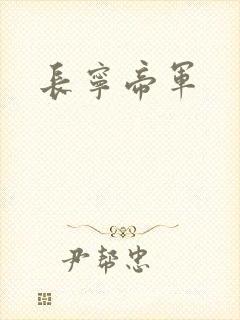 長寧帝軍
尹帮忠